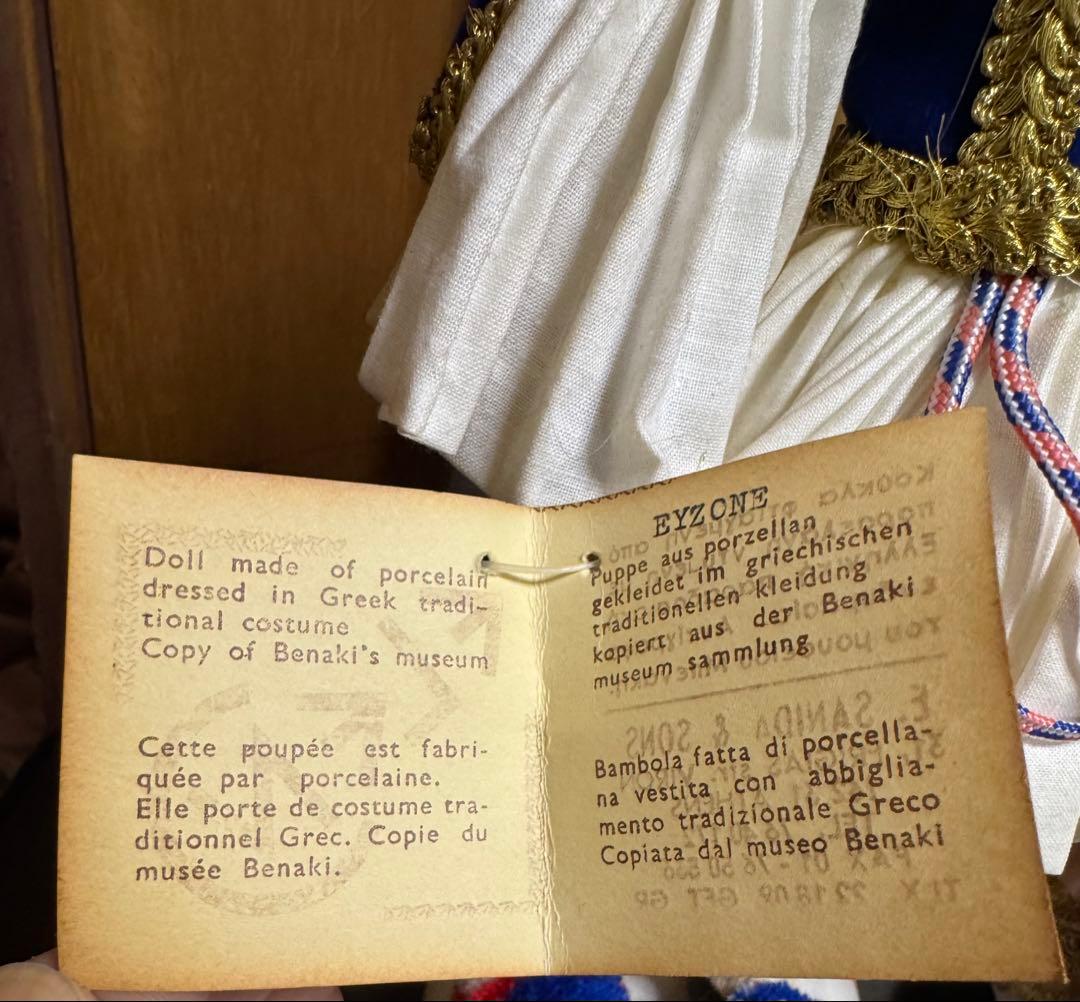 Doll made of porcelain
dressed in Greek tradi-
tional costume
Copy of Benaki's museum
Cette poupée est fabri-
quée par porcelaine.
Elle porte de costume tra-
ditionnel Grec. Copie du
musée Benaki.
EYZONE
Puppe aus porzellan
gekleidet im griechischen
traditionellen kleidung
kopiert aus der Benaki
museum sammlung
Bambola fatta di porcella-
na vestita con abbiglia-
mento tradizionale Greco
Copiata dal museo Benaki
E. SANIDA & SONS